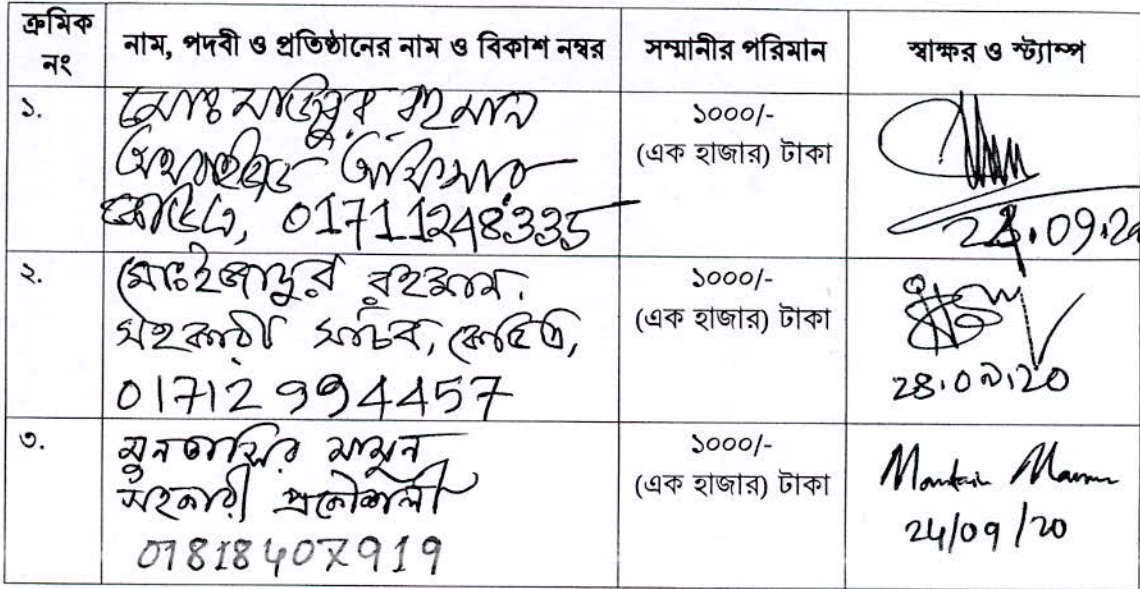 ক্রমিক নং
নাম, পদবী ও প্রতিষ্ঠানের নাম ও বিকাশ নম্বর
সম্মানীর পরিমান
স্বাক্ষর ও স্ট্যাম্প
১.
মোঃ মজিবুর রহমান
অফিসার
01711248335
১০০০/-
(এক হাজার) টাকা
24.09.20
২.
মোঃ রহমান
সহকারী সচিব,
01712994457
১০০০/-
(এক হাজার) টাকা
28.09.20
৩.
মুনতাসির মামুন
সহকারী প্রকৌশলী
01818407919
১০০০/-
(এক হাজার) টাকা
24/09/20